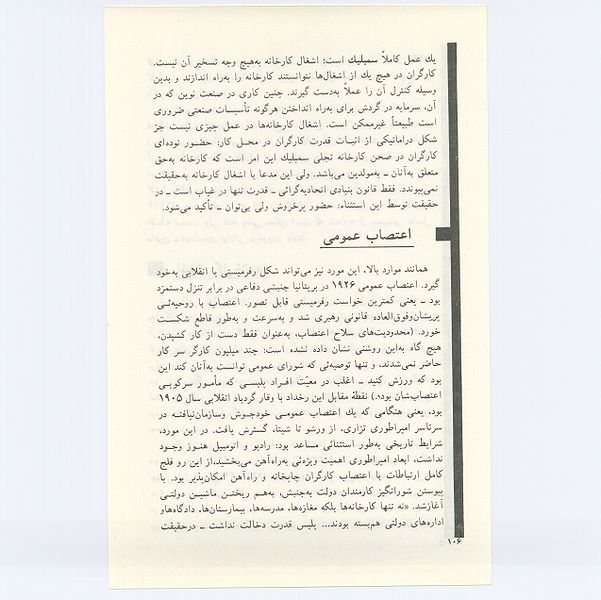 یك عمل کاملاً سمبلیك است؛ اشغال کارخانه به‌هیچ وجه تسخیر آن نیست.
کارگران در هیچ یك از اشغال‌ها نتوانستند کارخانه را به‌راه اندازند و بدین
وسیله کنترل آن را عملاً به‌دست گیرند. چنین کاری در صنعت نوین که در
آن، سرمایه در گردش برای به‌راه انداختن هرگونه تأسیسات صنعتی ضروری
است طبیعتاً غیرممکن است. اشغال کارخانه‌ها در عمل چیزی نیست جز
شکل دراماتیکی از اثبات قدرت کارگران در محل کار: حضور توده‌ای
کارگران در صحن کارخانه تجلی سمبلیك این امر است که کارخانه به‌حق
متعلق به‌آنان ــ به‌مولدین می‌باشد. ولی این مدعا با اشغال کارخانه به‌حقیقت
نمی‌پیوندد. فقط قانون بنیادی اتحادیه‌گرائی ــ قدرت تنها در غیاب است ــ در
حقیقت توسط این استثناء: حضور پرخروش ولی بی‌توان ــ تأکید می‌شود.
اعتصاب عمومی
همانند موارد بالا، این مورد نیز می‌تواند شکل رفرمیستی یا انقلابی به‌خود
گیرد. اعتصاب عمومی ۱۹۲۶ در بریتانیا جنبشی دفاعی در برابر تنزل دستمزد
بود ــ یعنی کمترین خواست رفرمیستی قابل تصور. اعتصاب با روحیه‌ئی
پریشان‌وفوق‌العاده قانونی رهبری شد و به‌سرعت و به‌طور قاطع شکست
خورد. (محدودیت‌های سلاح اعتصاب، به‌عنوان فقط دست از کار کشیدن،
هیچ گاه به‌این روشنی نشان داده نشده است: چند میلیون کارگر سر کار
حاضر نمی‌شدند، و تنها توصیه‌ئی که شورای عمومی توانست به‌آنان کند این
بود که ورزش کنید ــ اغلب در معیّت افراد پلیسی که مأمور سرکوبی
اعتصاب‌شان بود.) نقطهٔ مقابل این رخداد با وقار گردباد انقلابی سال ۱۹۰۵
بود، یعنی هنگامی که یك اعتصاب عمومی خودجوش وسازمان‌نیافته در
سرتاسر امپراطوری تزاری، از ورشو تا شیتا، گسترش یافت. در این مورد،
شرایط تاریخی به‌طور استثنائی مساعد بود: رادیو و اتومبیل هنوز وجود
نداشت، ابعاد امپراطوری اهمیت ویژه‌ئی به‌راه‌آهن می‌بخشید،از این رو فلج
کامل ارتباطات با اعتصاب کارگران چاپخانه و راه‌آهن امکان‌پذیر بود. با
پیوستن شورانگیز کارمندان دولت به‌جنبش، به‌هم ریختن ماشین دولتی
آغازشد. «نه تنها کارخانه‌ها بلکه مغازه‌ها، مدرسه‌ها، بیمارستان‌ها، دادگاه‌هاو
اداره‌های دولتی هم‌بسته بودند... پلیس قدرت دخالت نداشت ــ درحقیقت
۱۰۶